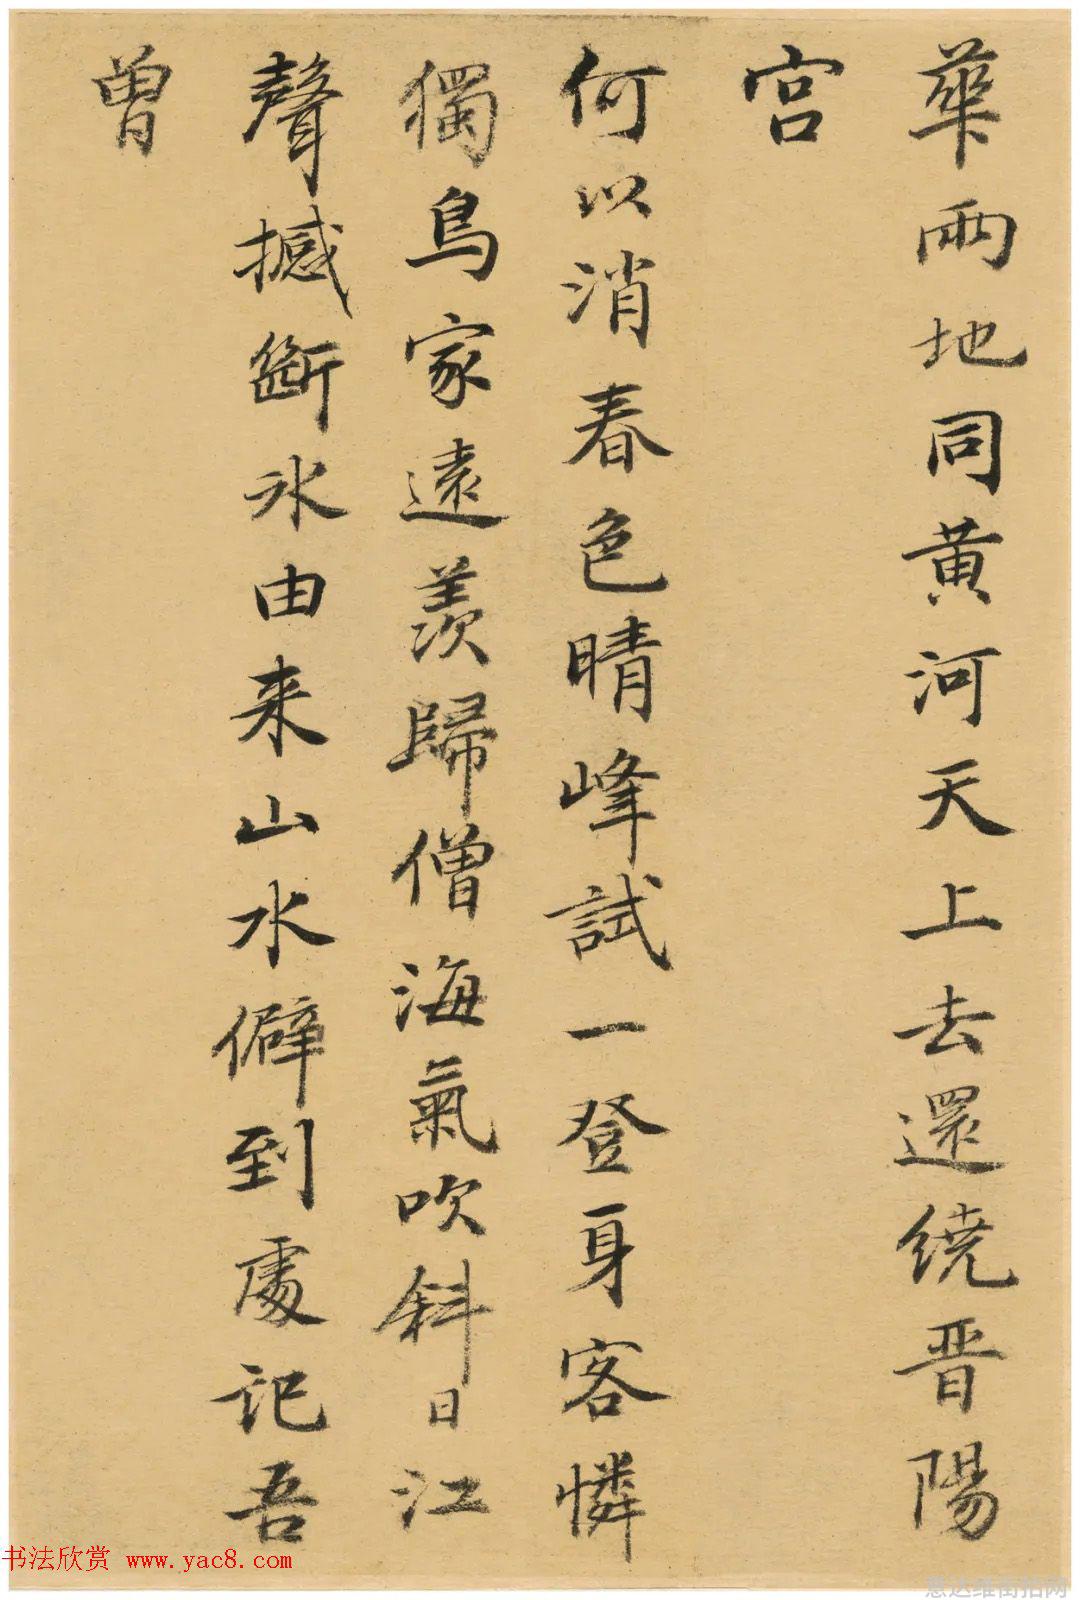 華兩地同黄河天上去還繞晋陽
宫
何以消春色晴峰試一登身客憐
獨鳥家遠羨歸僧海氣吹斜日江
聲撼斷冰由来山水僻到處記吾
曾
书法欣赏 www.yac8.com
意达维街拍网